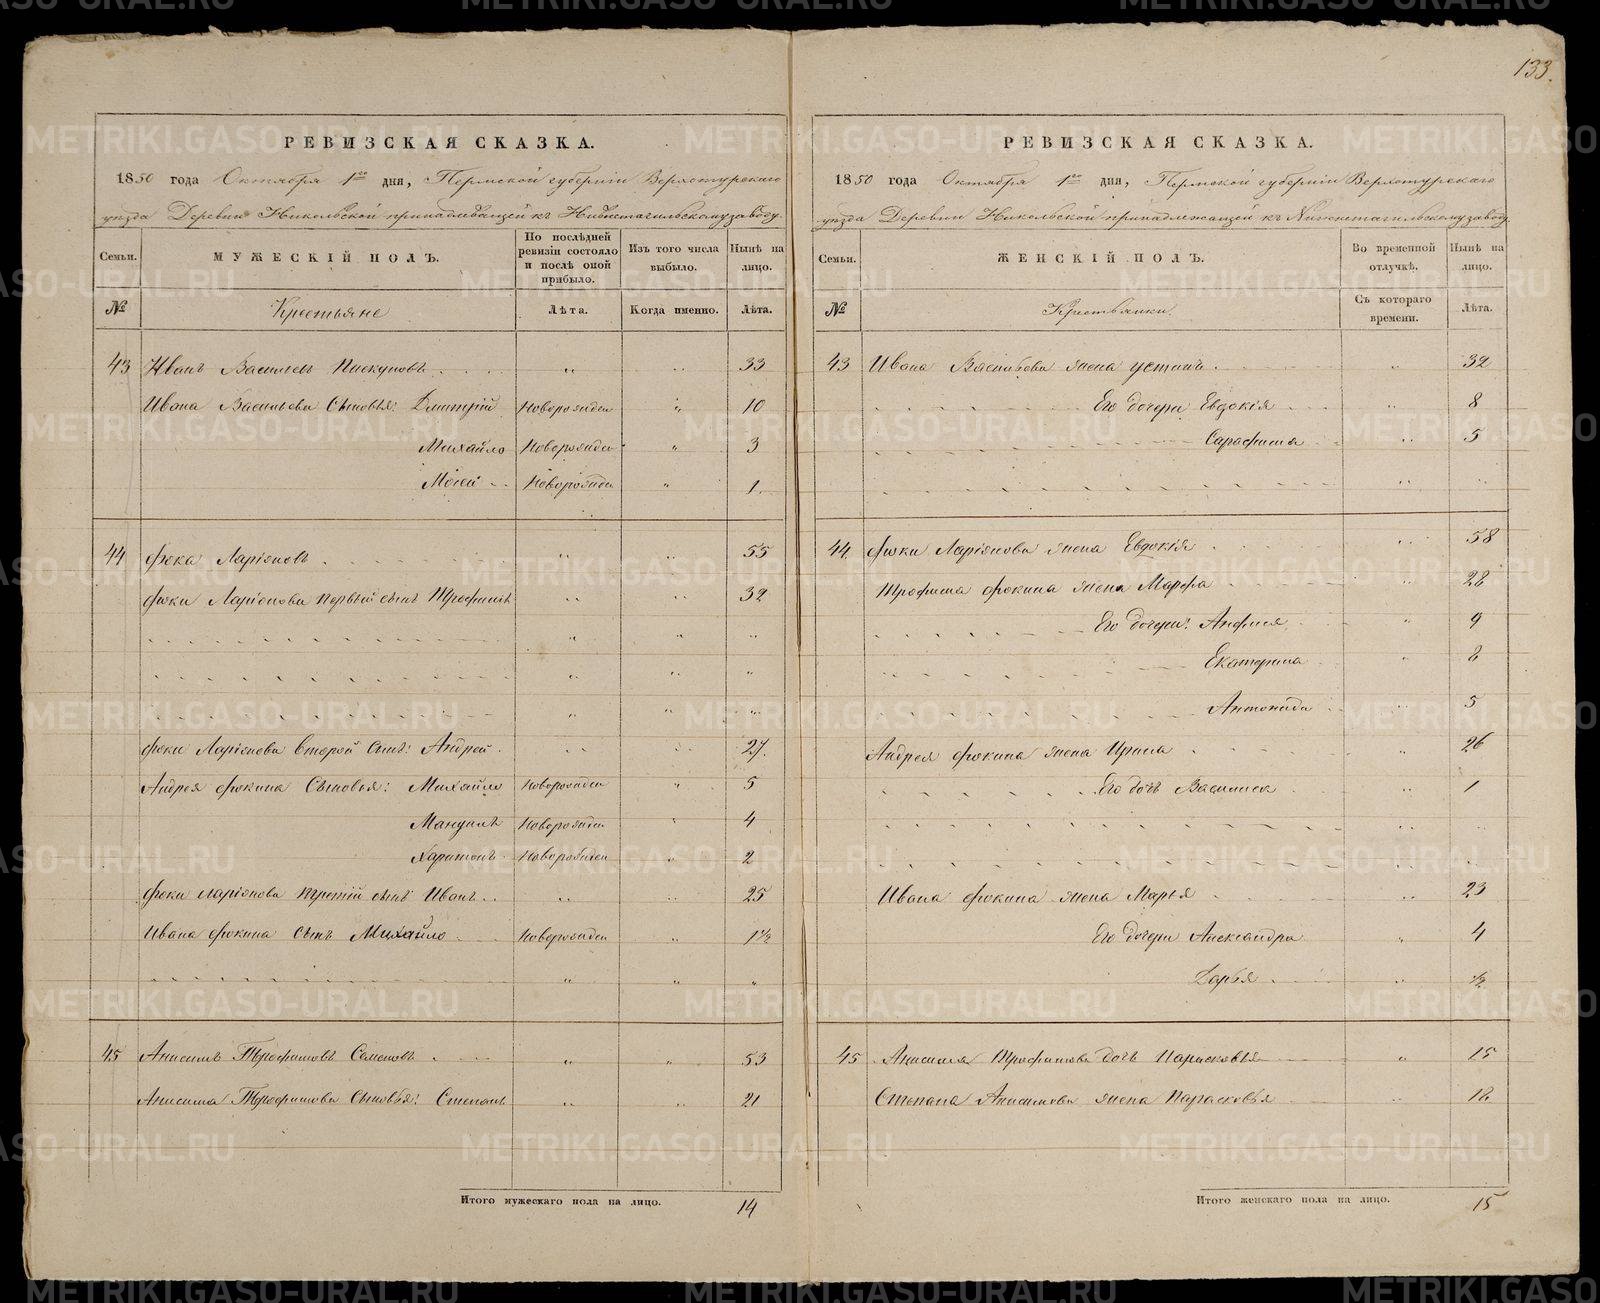 133.
РЕВИЗСКАЯ СКАЗКА.
1850 года Октября 1го дня, Пермской губернiи Верхотурскаго
уѣзда Деревни Никольской принадлежащей къ Нижнетагильскому заводу.
Семьи.
МУЖЕСКIЙ ПОЛЪ.
По послѣдней ревизiи состояло и послѣ оной прибыло.
Изъ того числа выбыло.
Нынѣ на лицо.
№
Крестьяне
Лѣта.
Когда именно.
Лѣта.
43 Иванъ Васильевъ Пискуновъ 33
Ивана Васильева Сыновья: Дмитрiй Новорожден 10
Михайло Новорожден 3
Моісей Новорожден 1
44 Фока Ларiоновъ 55
Фоки Ларiонова первый сынъ Трофимъ 32
Фоки Ларiонова второй сынъ: Андрей 27.
Андрея Фокина Сыновья: Михайло Новорожден 5
Мануилъ Новорожден 4
Харитонъ Новорожден 2
Фоки Ларiонова третiй сынъ Иванъ 25
Ивана Фокина сынъ Михайло Новорожден 1½
45 Анисимъ Трофимовъ Семеновъ 53
Анисима Трофимова Сыновья: Степанъ 21
Итого мужескаго пола на лицо. 14
РЕВИЗСКАЯ СКАЗКА.
1850 года Октября 1го дня, Пермской губернiи Верхотурскаго
уѣзда Деревни Никольской принадлежащей къ Нижнетагильскому заводу.
Семьи.
ЖЕНСКIЙ ПОЛЪ.
Во временной отлучкѣ.
Нынѣ на лицо.
№
Крестьянки.
Съ котораго времени.
Лѣта.
43 Ивана Васильева жена Устинья 32
Его дочери Евдокiя 8
Серафима 5
44. Фоки Ларiонова жена Евдокiя 58
Трофима Фокина жена Марфа 28
Его дочери: Анфися 9
Екатерина 8
Антонида 5
Андрея Фокина жена Ирина 26
Его дочь Василиса 1
Ивана Фокина жена Марья 23
Его дочери Александра 4
Дарья ½
45 Анисима Трофимова дочь Парасковья 15
Степана Анисимова жена Парасковья 18
Итого женскаго пола на лицо. 15
METRIKI.GASO-URAL.RU